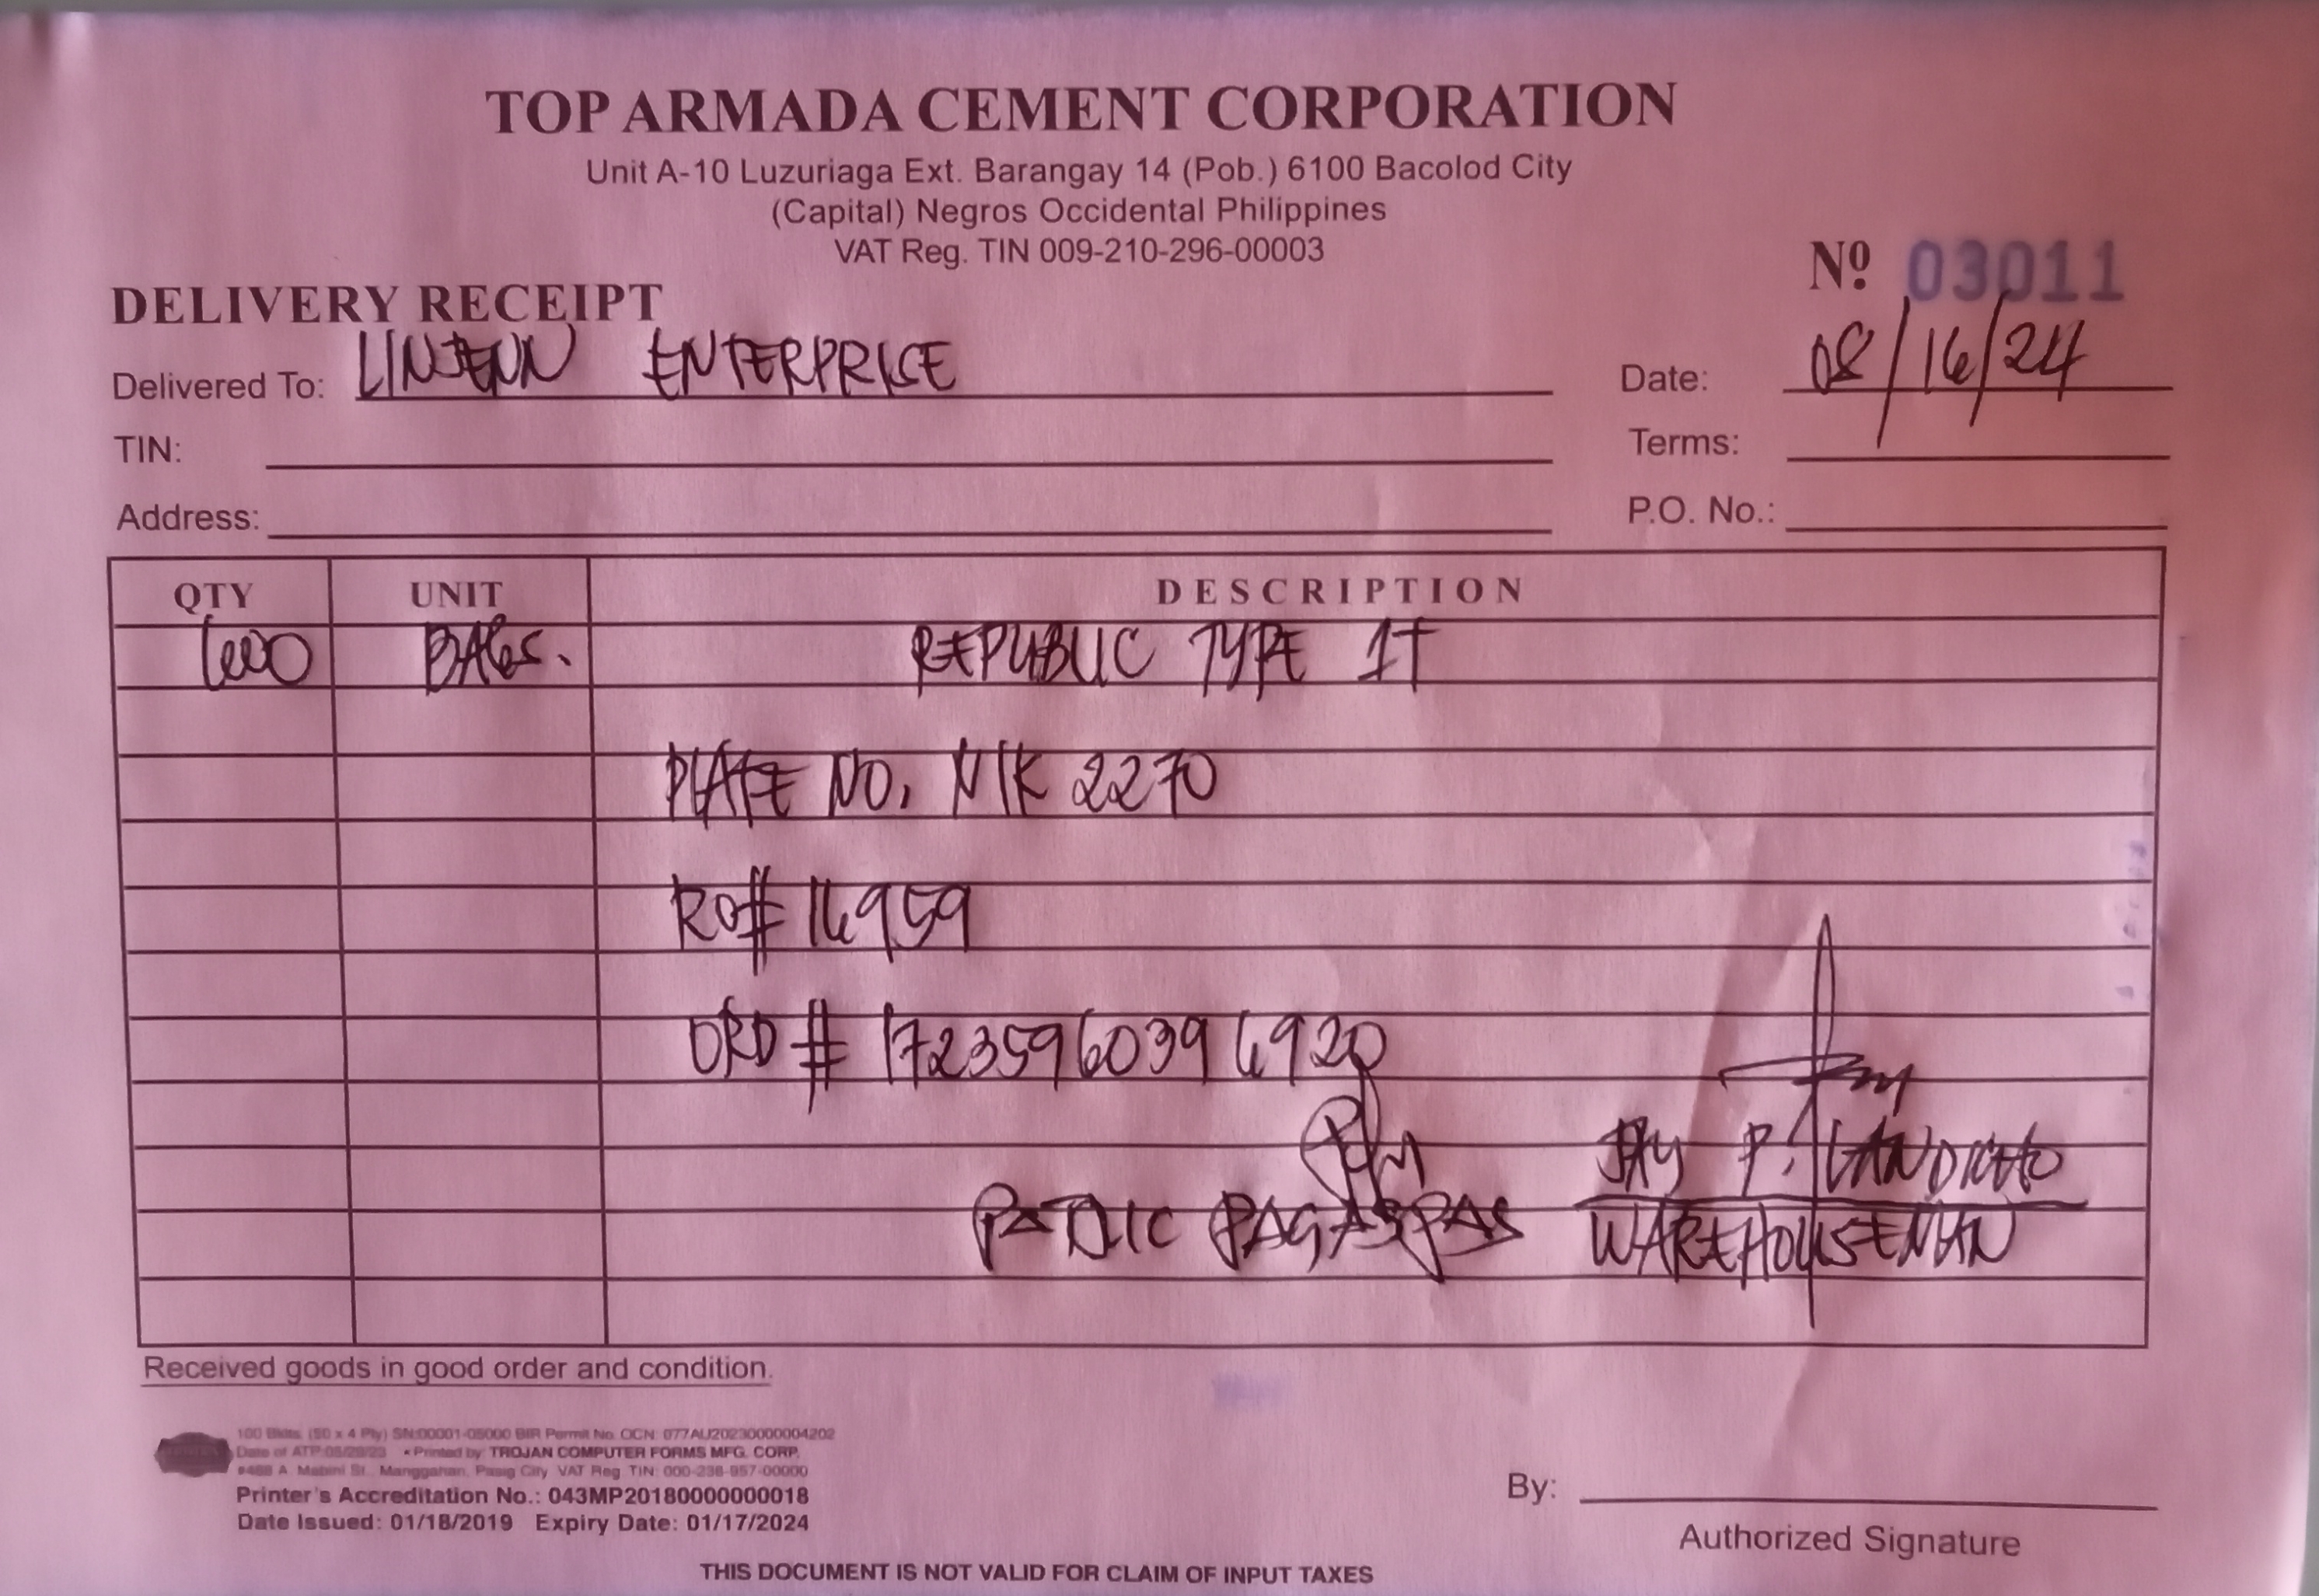 TOP ARMADA CEMENT CORPORATION
Unit A-10 Luzuriaga Ext. Barangay 14 (Pob.) 6100 Bacolod City
(Capital) Negros Occidental Philippines
VAT Reg. TIN 009-210-296-00003
Nº 03011
DELIVERY RECEIPT
Delivered To: LINJENN ENTERPRISE Date: 08/16/24
TIN: Terms:
Address: P.O. No.:
QTY UNIT DESCRIPTION
600 BAGS. REPUBLIC TYPE 1T
PLATE NO. NIK 2270
RO# 16959
ORD # 17235960396920
JAY P. LANDICHO
PAGASPAS WAREHOUSEMAN
Received goods in good order and condition.
100 Bklts. (50 x 4 Ply) SN:00001-05000 BIR Permit No. OCN: 077AU20230000004202
Date of ATP: • Printed by: TROJAN COMPUTER FORMS MFG. CORP.
#488 A. Mabini St., Manggahan, Pasig City VAT Reg. TIN: 000-238-957-00000
Printer's Accreditation No.: 043MP20180000000018
Date Issued: 01/18/2019 Expiry Date: 01/17/2024
By:
Authorized Signature
THIS DOCUMENT IS NOT VALID FOR CLAIM OF INPUT TAXES